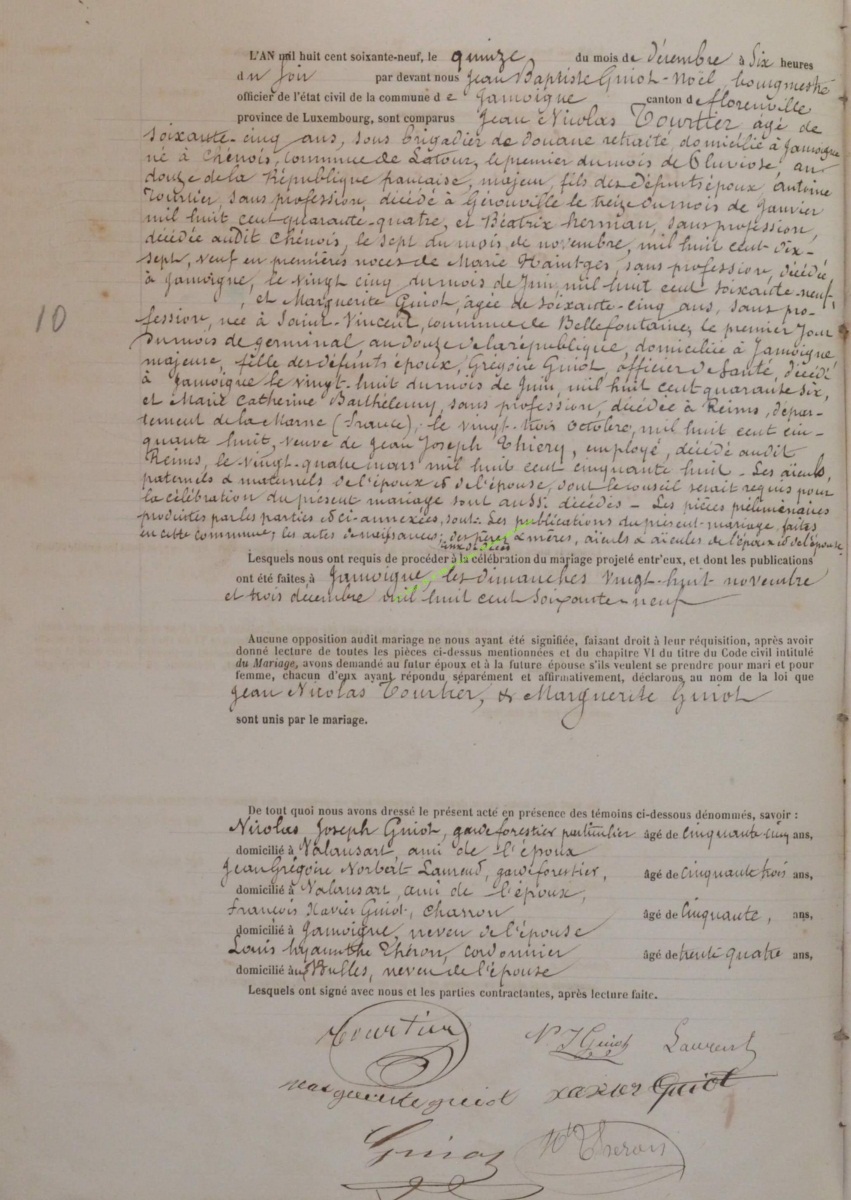 L'AN mil huit cent soixante-neuf, le quinze du mois de Décembre à Six heures
du Soir par devant nous Jean Baptiste Guiot-Noël, bourgmestre
officier de l'état civil de la commune de Jamoigne canton de florenville
province de Luxembourg, sont comparus Jean Nicolas Tourtier, âgé de
soixante-cinq ans, sous brigadier de Douane retraité, domicilié à Jamoigne
né à Chenois, commune de Latour, le premier du mois de Pluviose, an
douze de la République française, majeur, fils des défunts époux, Antoine
Tourtier, sans profession, décédé à Gérouville le treize du mois de Janvier
mil huit cent quarante-quatre, et Béatrix herman, sans profession,
décédée audit Chénois, le sept du mois de novembre, mil huit cent dix-
sept, veuf en premières noces de Marie Haintges, sans profession, décédée
à Jamoigne, le vingt cinq du mois de Juin, mil huit cent soixante-neuf,
, et Marguerite Guiot, âgée de soixante-cinq ans, sans pro-
10
fession, née à Saint-Vincent, commune de Bellefontaine, le premier jour
du mois de germinal an douze de la république, domiciliée à Jamoigne,
majeure, fille des défunts époux, Grégoire Guiot, officier de Santé, décédé
à Jamoigne le vingt-huit du mois de Juin, mil huit cent quarante six,
et Marie Catherine Barthélemy, sans profession, décédée à Reims, dépar-
tement de la Marne (france), le vingt-trois octobre, mil huit cent cin-
quante huit, veuve de Jean Joseph Thiery, employé, décédé audit
Reims, le vingt-quatre mars mil huit cent cinquante huit - Les aïeuls,
paternels & maternels de l'époux & de l'épouse, dont le conseil serait requis pour
la célébration du présent mariage sont aussi décédés - Les pièces préliminaires
produites par les parties & ci-annexées, sont: Les publications du présent mariage, faites
en cette commune, les actes de naissances, des pères & mères, aïeuls & aïeules de l'époux & de l'épouse
ceux de décès
Lesquels nous ont requis de procéder à la célébration du mariage projeté entr'eux, et dont les publications
ont été faites à Jamoigne, les dimanches vingt-huit novembre
et trois décembre mil huit cent soixante-neuf
Aucune opposition audit mariage ne nous ayant été signifiée, faisant droit à leur réquisition, après avoir
donné lecture de toutes les pièces ci-dessus mentionnées et du chapitre VI du titre du Code civil intitulé
du Mariage, avons demandé au futur époux et à la future épouse s'ils veulent se prendre pour mari et pour
femme, chacun d'eux ayant répondu séparément et affirmativement, déclarons au nom de la loi que
Jean Nicolas Tourtier, & Marguerite Guiot
sont unis par le mariage.
De tout quoi nous avons dressé le présent acté en présence des témoins ci-dessous dénommés, savoir :
Nicolas Joseph Guiot, garde forestier particulier âgé de cinquante cinq ans,
domicilié à Valansart, ami de l'époux
Jean Grégoire Norbert Laurent, garde forestier, âgé de cinquante trois ans,
domicilié à Valansart, ami de l'époux,
François Xavier Guiot, charron âgé de Cinquante, ans,
domicilié à Jamoigne, neveu de l'épouse
Louis hyacinthe Théron, cordonnier âgé de trente quatre ans,
domicilié à Bulles, neveu de l'épouse
Lesquels ont signé avec nous et les parties contractantes, après lecture faite.
Tourtier N. J Guiot Laurent
marguerite guiot xavier Guiot
Guiot Theron